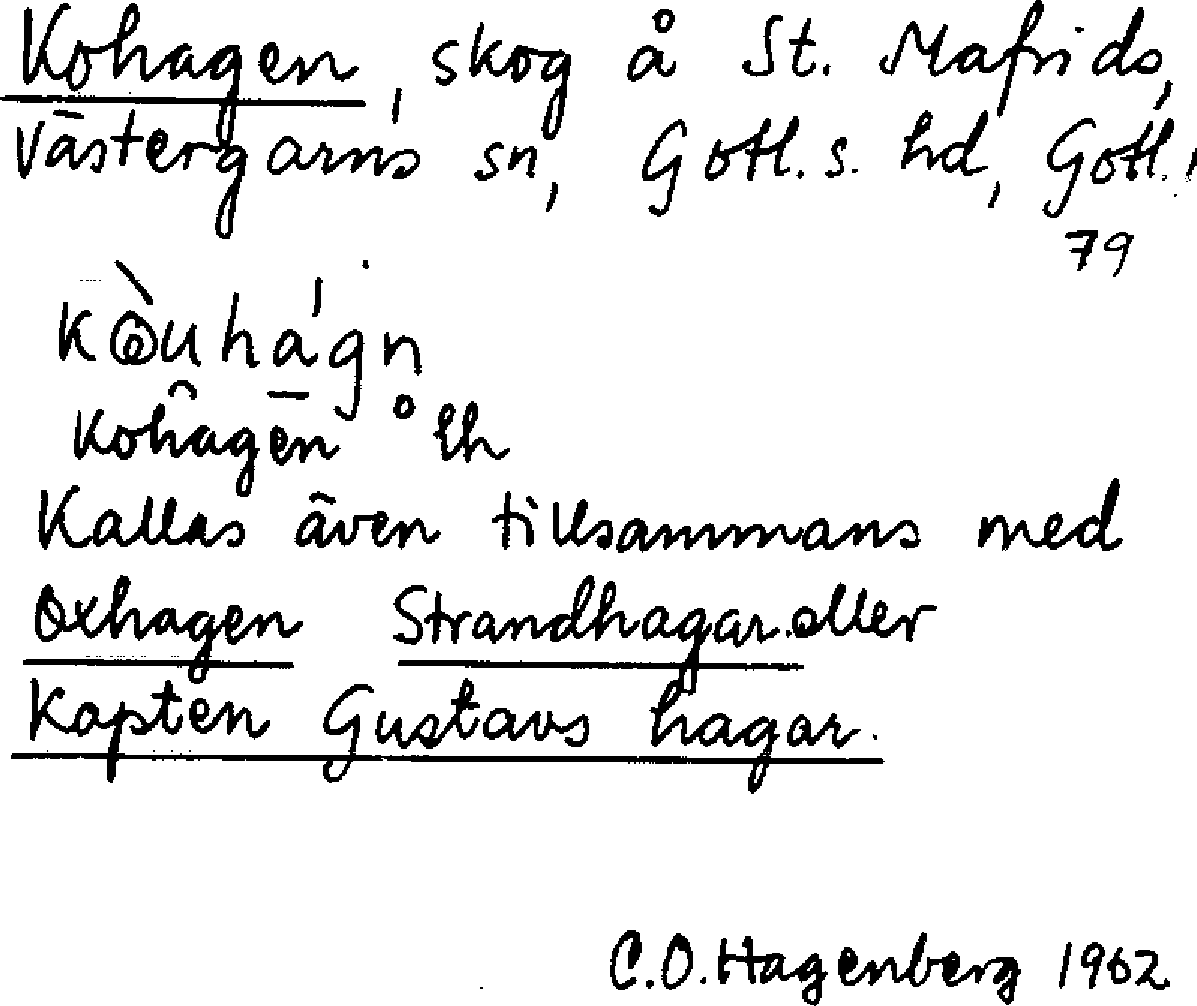 Kohagen, skog å St. Mafrids,
Västergarns sn, Gotl. s. hd, Gotl.,
79
kohagen lh
Kallas även tillsammans med
Oxhagen Strandhagar eller
Kapten Gustavs hagar.
C.O. Hagenberg 1962